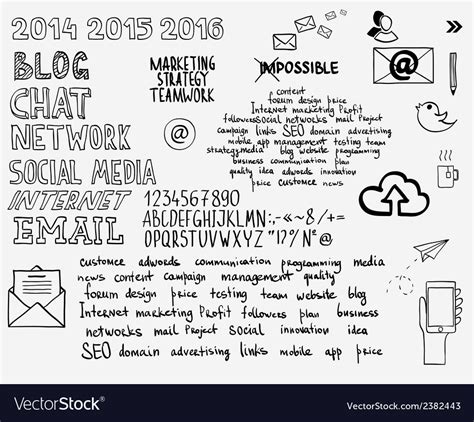 2014 2015 2016
BLOG
CHAT
NETWORK
SOCIAL MEDIA
INTERNET
EMAIL
MARKETING
STRATEGY
TEAMWORK
IMPOSSIBLE
@
@
content
forum design price
Internet marketing Profit
followers social networks mail Project
campaign links SEO domain advertising
mobile app management testing team
strategy media blog website programming
business communication plan
quality idea adwords innovation
price customer news
1234567890
ABCDEFGHIJKLMN
OPQRSTUVWXYZ
customer adwords communication programming media
news content campaign management quality
forum design price testing team website blog
Internet marketing Profit followers plan business
networks mail Project social innovation idea
SEO domain advertising links mobile app price
VectorStock®
VectorStock.com/2382443